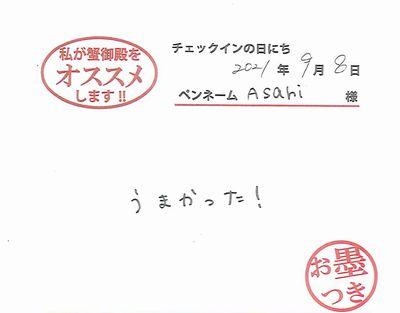 私が蟹御殿を
オススメ
します!!
チェックインの日にち
2021年9月8日
ペンネーム Asahi 様
うまかった!
お墨
つき